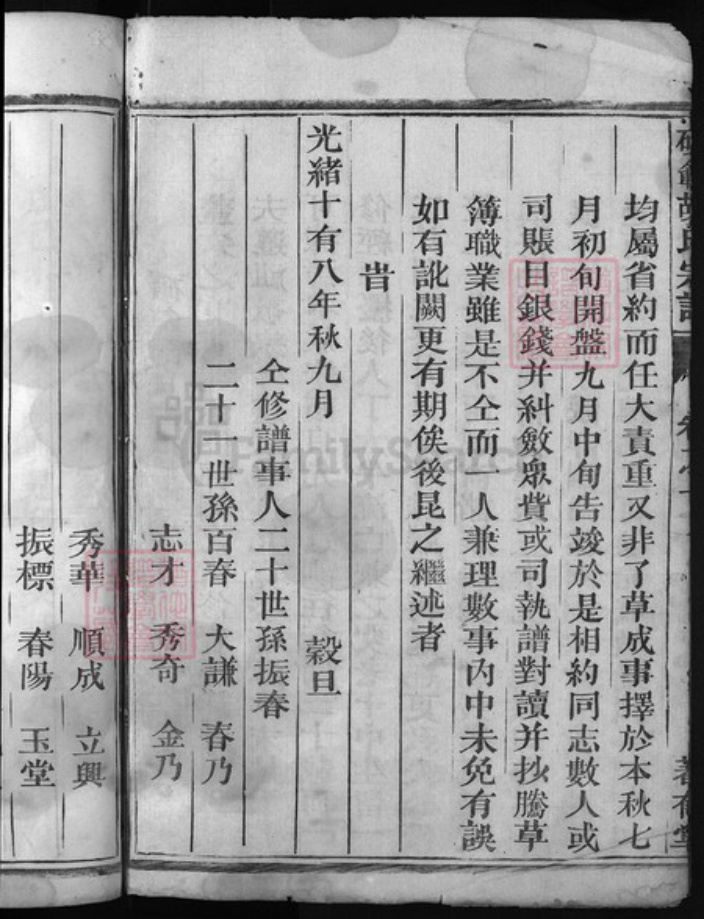 均屬省約而任大責重又非了草成事擇於本秋七
月初旬開盤九月中旬告竣於是相約同志數人或
司賬目銀錢并糾斂眾費或司執譜對讀并抄騰草
簿職業雖是不仝而一人兼理數事內中未免有誤
如有訛闕更有期俟後昆之繼述者
旹
光緒十有八年秋九月 穀旦
仝修譜事人二十世孫振春
二十一世孫百春 大謙 春乃
志才 秀奇 金乃
秀華 順成 立興
振標 春陽 玉堂
FamilySearch